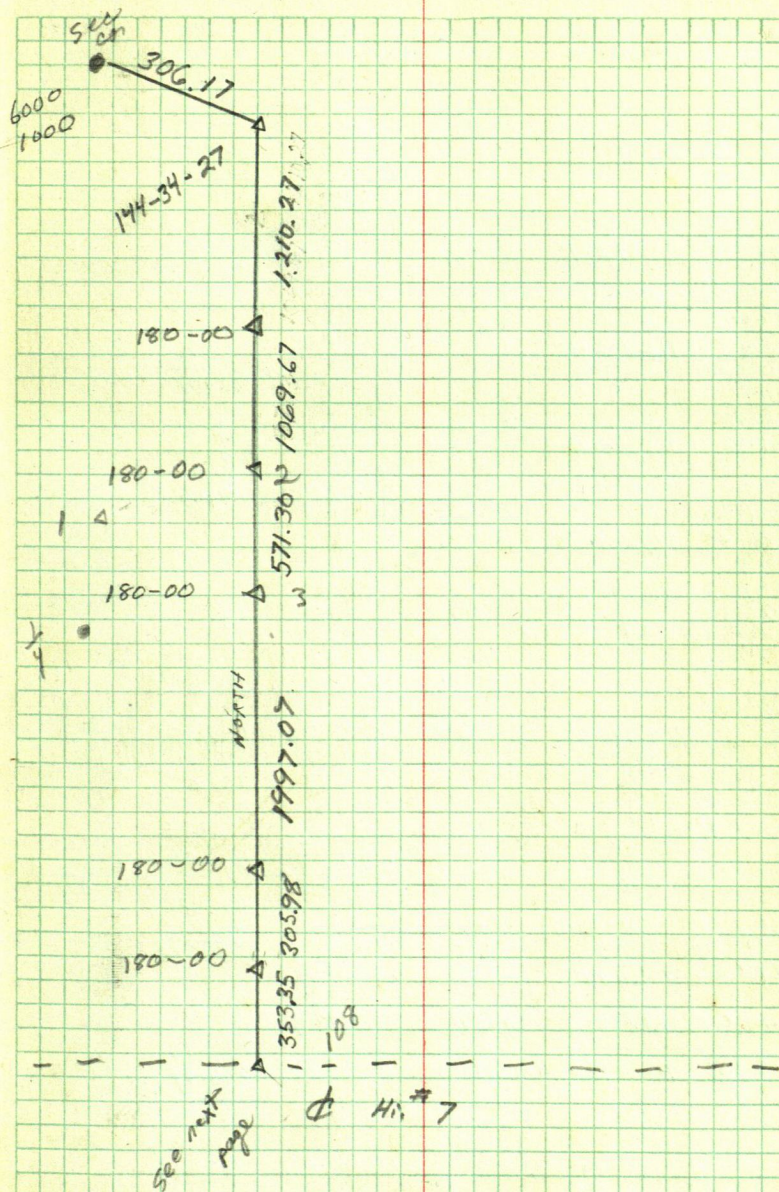 Sec
cn
306.17
6000
1000
144-34-27
1,210.27
180-00
1069.67
180-00
2
571.30
1
180-00
3
1/4
NORTH
1997.07
180-00
305.98
180-00
353.35
108
See next
page
Hi. #7